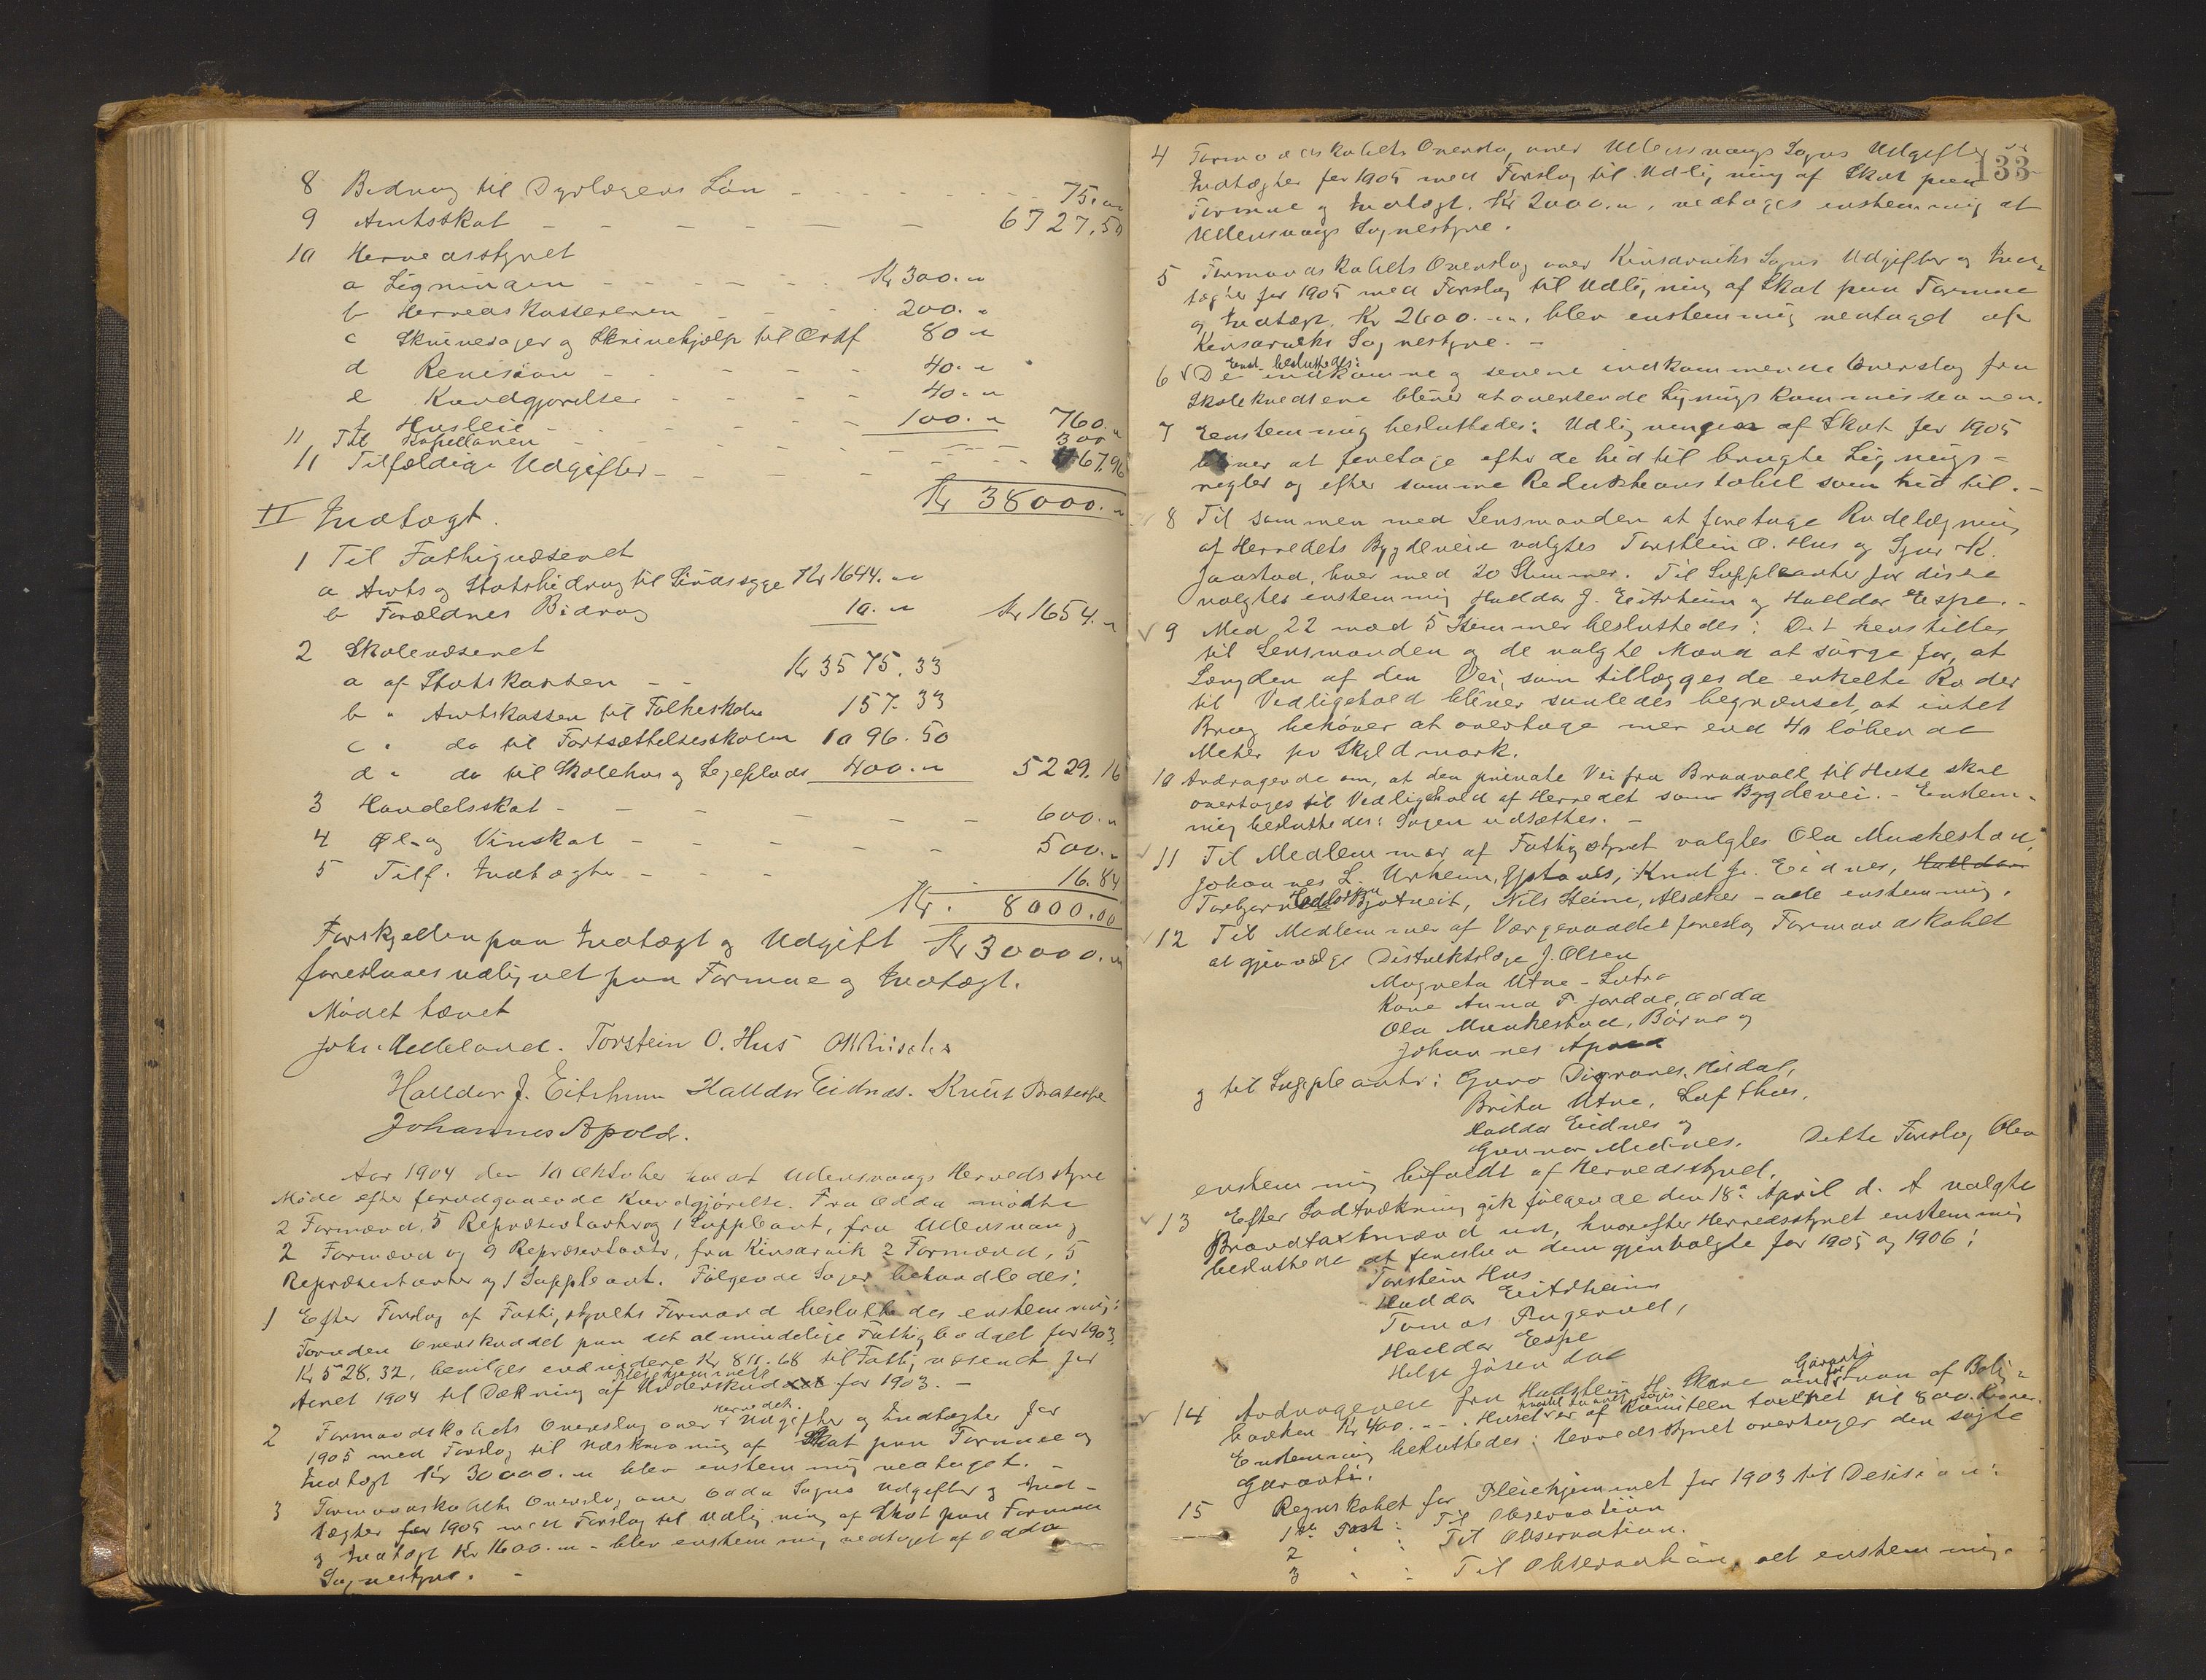 8 Bidrag til Dyrlægens Løn - - - - - 75.00
9 Amtsskat - - - - - - 6727.50
10 Herredsstyret
a Ligningen - - - - - Kr 300.00
b Herredskassereren - - - 200.00
c Skrivesager og Skrivehjælp til Ordf 80 00
d Revision - - - - 40.00
e Kundgjørelser - - - - 40.00
f Husleie - - - - - 100.00 760.00
11 Til Kapellanen - - - - - 300
11 Tilfældige Udgifter - - - - - 67.96
Kr 38000.00
II Indtægt.
1 Til Fathigvæsenet
a Amts og Statsbidrag til Sindssyge Kr 1644.00
b Forældres Bidrag 10.00 Kr 1654.00
2 Skolevæsenet
a af Statskassen - - Kr 3575.33
b " Amtskassen til Folkeskolen 157.33
c " do til Fortsættelsesskolen 1096.50
d " do til Skolehus og Legeplads 400.00 5229.16
3 Handelsskat - - - - - - 600.00
4 Øl- og Vinskat - - - - - 500.00
5 Tilf. Indtægter - - - - 16.84
Kr. 8000.00
Forskjellen paa Indtægt og Udgift Kr 30000.00
foreslaaes udlignet paa Formue og Indtægt.
Mødet hævet
Johs. Aelleland. Torstein O. Hus
Halldor J. Eitrheim Halldor Eidnes. Knut Braterspe
Johannes Apold.
Aar 1904 den 10 Oktober holdt Ullensvangs Herredsstyre
Møde efter forudgaaende Kundgjørelse. Fra Odda mødte
2 Formænd, 5 Repræsentanter og 1 Suppleant, fra Ullensvang
2 Formænd og 9 Repræsentanter, fra Kinsarvik 2 Formænd, 5
Repræsentanter og 1 Suppleant. Følgende Sager behandledes:
1 Efter Forslag af Fattigstyrets Formand besluttedes enstemmig:
Foruden Overskuddet paa det almindelige Fattigbudget for 1903,
Kr 528.32, bevilges endvidere Kr 811.68 til Fattigvæsenet for
Aaret 1904 til Dækning af Pleiehjemmets Underskud for 1903. -
2 Formandskabets Overslag over Herredets Udgifter og Indtægter for
1905 med Forslag til Udskrivning af Skat paa Formue og
Indtægt Kr 30000.00 blev enstemmig vedtaget. -
3 Formandskabets Overslag over Odda Sogns Udgifter og Ind-
tægter for 1905 med Forslag til Udligning af Skat paa Formue
og Indtægt Kr 1600.00 - blev enstemmig vedtaget af Odda
Sognestyre. -
133
4 Formandskabets Overslag over Ullensvangs Sogns Udgifter og
Indtægter for 1905 med Forslag til Udligning af Skat paa
Formue og Indtægt, Kr 2000.00, vedtages enstemmig at
Ullensvangs Sognestyre.
5 Formandskabets Overslag over Kinsarviks Sogns Udgifter og Ind-
tægter for 1905 med Forslag til Udligning af Skat paa Formue
og Indtægt, Kr 2600.00, blev enstemmig vedtaget af
Kinsarviks Sognestyre. -
Enst. besluttedes:
6 De indkomne og senere indkommende Overslag fra
Skolekredsene bliver at oversende Ligningskommissionen.
7 Eenstemmig besluttedes: Udligningen af Skat for 1905
bliver at foretage efter de hidtil brugte Lignings-
regler og efter samme Reduktionstabel som hidtil. -
8 Til sammen med Lensmanden at foretage Rodelægning
af Herredets Bygdeveie valgtes Torstein O. Hus og Sjur K.
Jaastad, hver med 20 Stemmer. Til Suppleanter for disse
valgtes enstemmig Halldor J. Eitrheim og Halldor Espe. -
9 Med 22 mod 5 Stemmer besluttedes: Det henstilles
til Lensmanden og de valgte Mænd at sørge for, at
Længden af den Vei, som tillægges de enkelte Roder
til Vedligehold bliver saaledes begrænset, at intet
Brug behøver at overtage mer end 40 løbende
Meter pr Skyldmark.
10 Andragende om, at den private Vei fra Braavoll til Huse skal
overtages til Vedligehold af Herredet som Bygdevei. - Enstem-
mig besluttedes: Sagen udsættes. -
11 Til Medlemmer af Fattigstyret valgtes Ola Munkestad,
Johannes L. Urheim, Opstanes, Knut Jr. Eidnes, Halldor
Torbjørn Bjotveit, Nils Steine, Alsaker - alle enstemmig.
12 Til Medlemmer af Værgeraadet foreslog Formandskabet
at gjenvælge Distriktslæge J. Olsen
Magreta Utne - Lutro
Kone Anna T. Jordal, Odda
Ola Munkestad, Børve og
Johannes Apold
og til Suppleanter: Guro Digranes. Hildal,
Brita Utne, Lofthus,
Haldor Eidnes og
Gunnar Mednes. Dette Forslag blev
enstemmig bifaldt af Herredsstyret.
13 Efter Lodtrækning gik følgende den 18de April d. A valgte
Brandtaxtmænd ud, hvorefter Herredsstyret enstemmig
besluttede at foreslaa dem gjenvalgte for 1905 og 1906:
Torstein Hus
Haldor Eitrheim
Tomas Ringerud,
Halldor Espe
Helge Jøsendal
14 Andragende fra Hadstein H. Skare om Garanti for Laan af Bolig-
banken Kr 400.-. Huset, er af Komiteen taxeret til 800. Kroner.
Enstemmig besluttedes: Herredsstyret overtager den søgte
Garanti.
15 Regnskabet for Pleiehjemmet for 1903 til Desision:
1ste Post: Til Observation
2 " : Til Observation.
3 " : Til Observation, alt enstemmig.